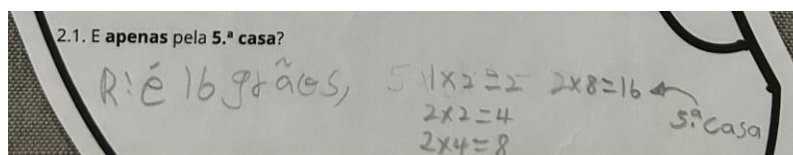 2.1. E apenas pela 5.ª casa?
R: é 16 grãos, 1x2=2 2x8=16
2x2=4 5.ª casa
2x4=8